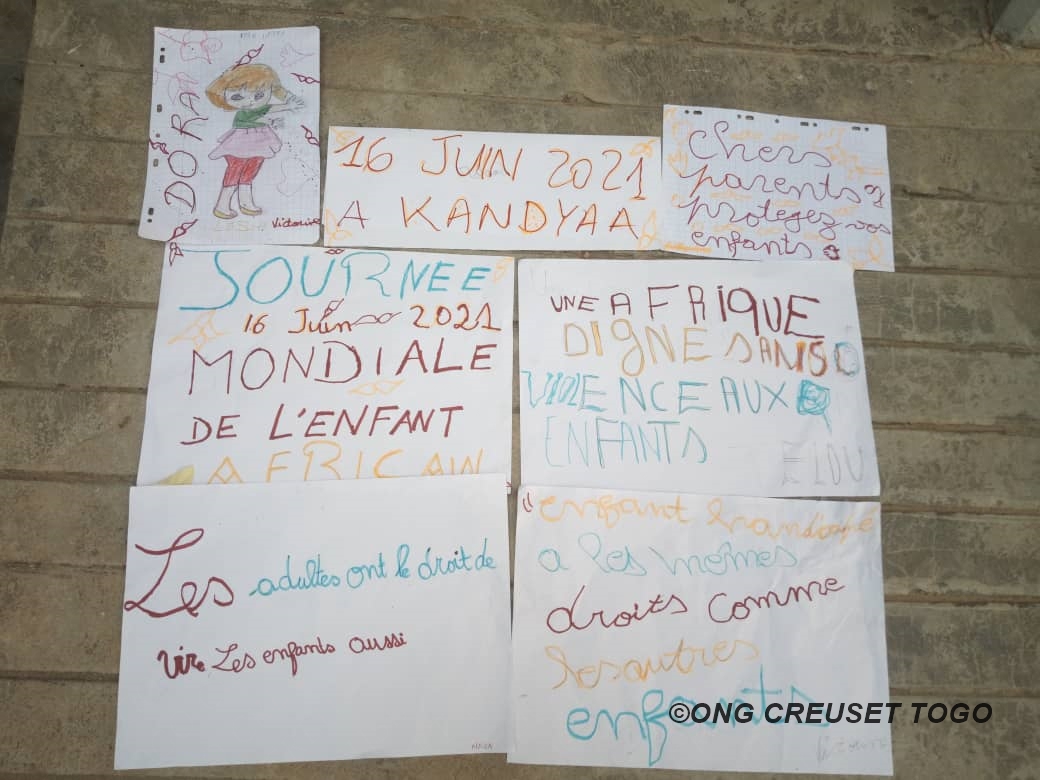 DORA
Victoire
16 JUIN 2021
A KANDYAA
Chers
parents
protégez vos
enfants
JOURNEE
16 Juin 2021
MONDIALE
DE L'ENFANT
AFRICAIN
UNE AFRIQUE
DIGNE SANS
VIOLENCE AUX
ENFANTS
ELOU
Les adultes ont le droit de
vivre Les enfants aussi
enfant handicapé
a les mêmes
droits comme
les autres
enfants
©ONG CREUSET TOGO